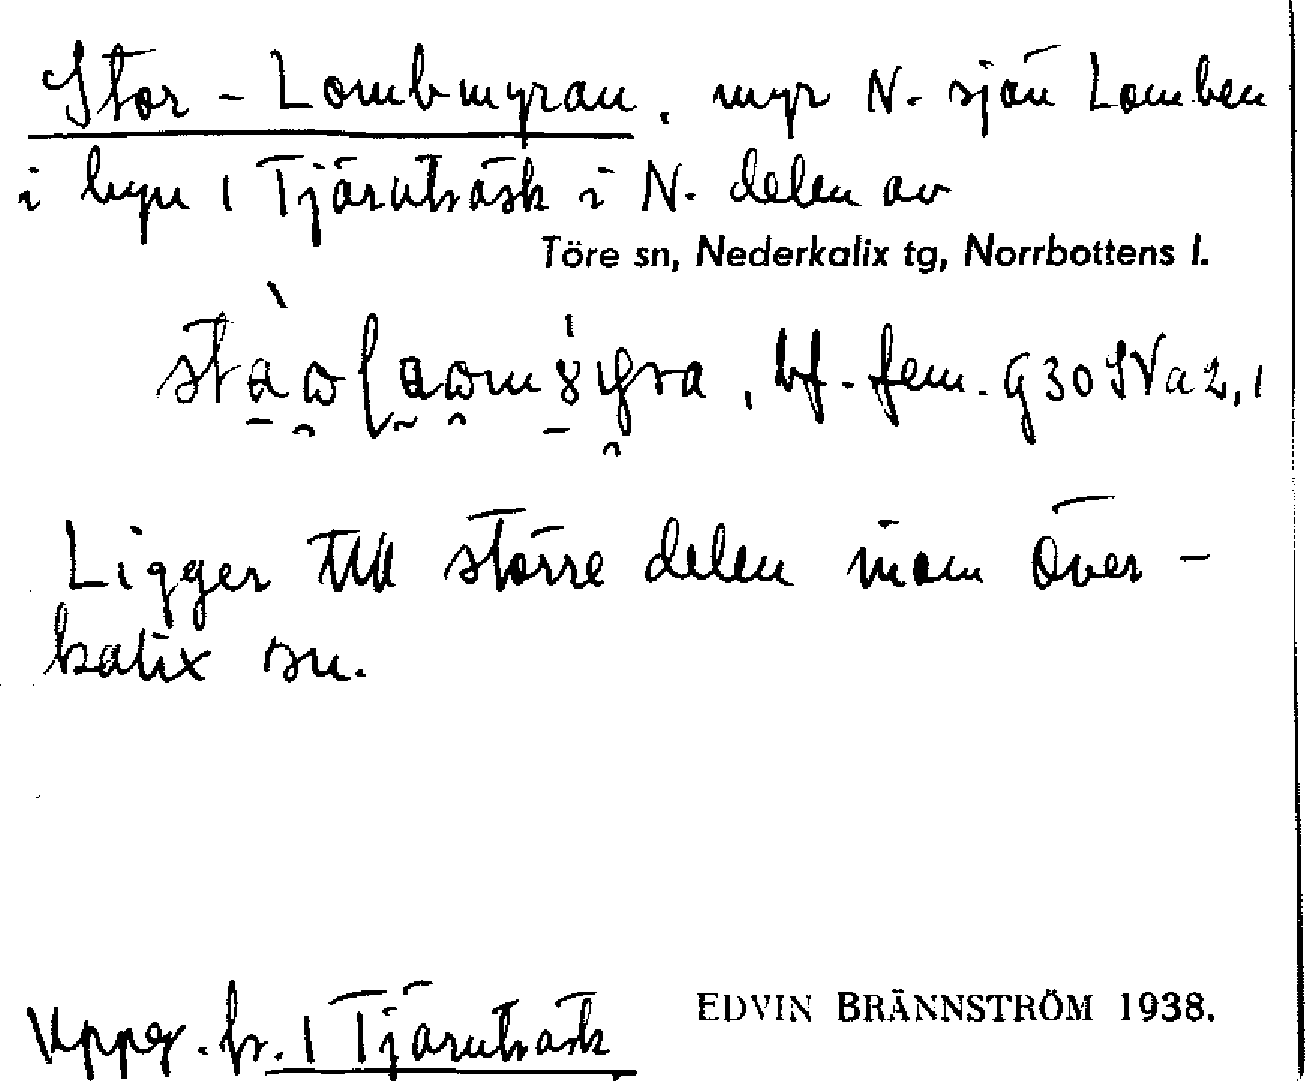 Stor-Lombmyran, myr N. sjön Lomben
i byn 1 Tjärnträsk i N. delen av
Töre sn, Nederkalix tg, Norrbottens l.
, bf. fem. G30SVa2,1
Ligger till större delen inom Över-
kalix sn.
Uppg. fr. 1 Tjärnträsk
EDVIN BRÄNNSTRÖM 1938.